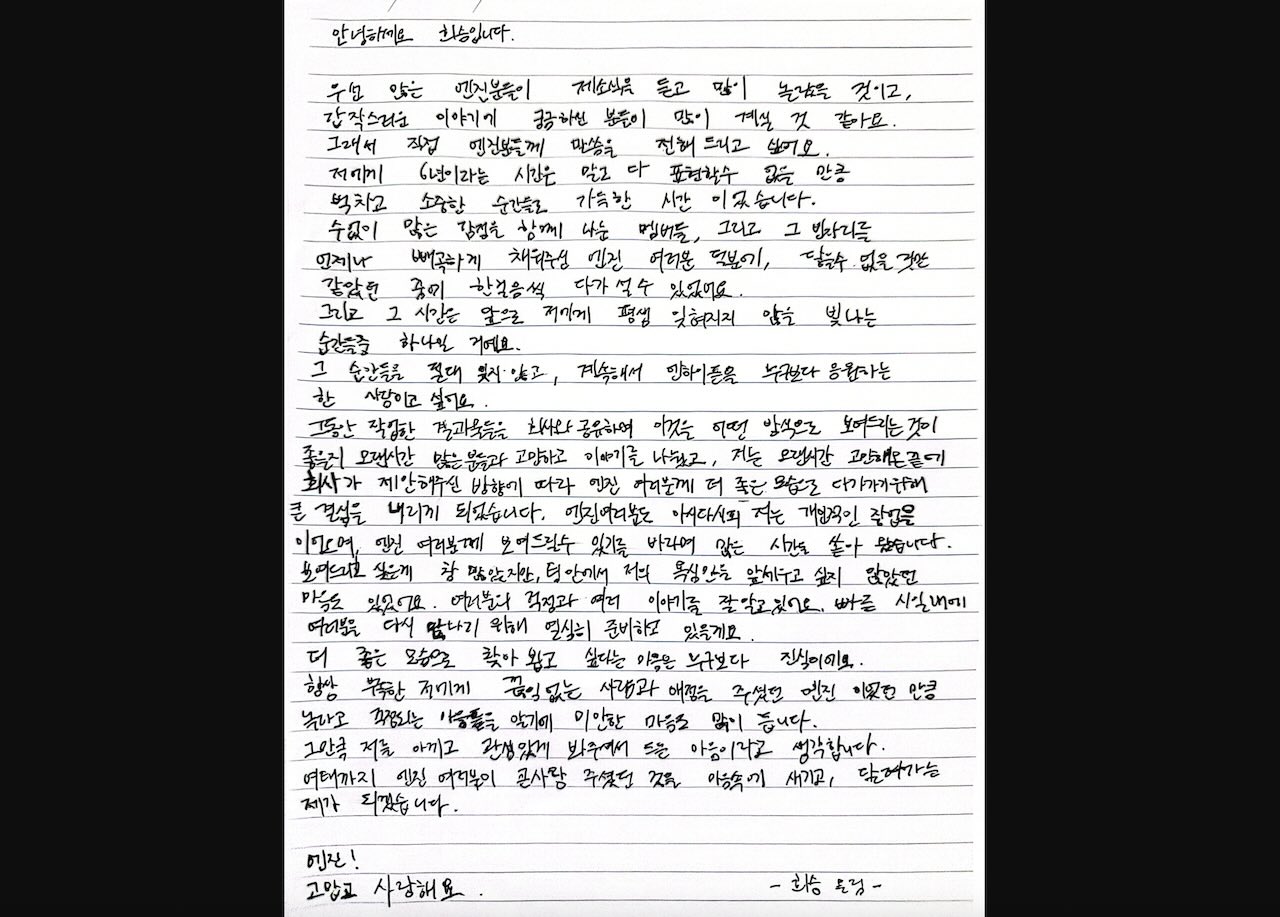 안녕하세요 희승입니다.
우선 많은 엔진분들이 제소식을 듣고 많이 놀랐을 것이고,
갑작스러운 이야기에 궁금하신 분들이 많이 계실 것 같아요.
그래서 직접 엔진분들께 말씀을 전해 드리고 싶어요.
저에게 6년이라는 시간은 말로 다 표현할수 없을 만큼
벅차고 소중한 순간들로 가득한 시간 이었습니다.
수없이 많은 감정을 함께 나눈 멤버들, 그리고 그 빈자리를
언제나 빼곡하게 채워주신 엔진 여러분 덕분에, 닿을수 없을 것만
같았던 꿈에 한걸음씩 다가 설 수 있었어요.
그리고 그 시간은 앞으로 저에게 평생 잊혀지지 않을 빛나는
순간들중 하나일 거에요.
그 순간들을 절대 잊지 않고, 계속해서 엔하이픈을 누구보다 응원하는
한 사람이고 싶어요.
그동안 작업한 결과물들을 회사와 공유하며 이것을 어떤 방식으로 보여드리는 것이
좋을지 오랜시간 많은분들과 고민하고 이야기를 나눴고, 저는 오랜시간 고민해온 끝에
회사가 제안해주신 방향에 따라 엔진 여러분께 더 좋은 모습으로 다가가기위해
큰 결심을 내리게 되었습니다. 엔진여러분도 아시다시피 저는 개인적인 작업을
이어오며, 엔진 여러분께 보여드릴수 있기를 바라며 많은 시간을 쏟아 왔습니다.
보여드리고 싶은게 참 많았지만, 팀 안에서 저의 욕심만을 앞세우고 싶지 않았던
마음도 있었어요. 여러분의 걱정과 여러 이야기를 잘 알고 있어요. 빠른 시일내에
여러분을 다시 만나기 위해 열심히 준비하고 있을게요.
더 좋은 모습으로 찾아 뵙고 싶다는 마음은 누구보다 진심이에요.
항상 부족한 저에게 끊임없는 사랑과 애정을 주셨던 엔진 이었던 만큼
놀라고 걱정되는 마음들을 알기에 미안한 마음도 많이 듭니다.
그만큼 저를 아끼고 관심있게 봐주셔서 드는 마음이라고 생각합니다.
여태까지 엔진 여러분이 큰사랑 주셨던 것을 마음속에 새기고, 달려가는
제가 되겠습니다.
엔진!
고맙고 사랑해요.
- 희승 드림 -